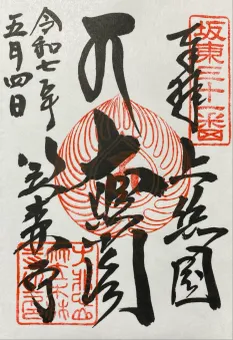 坂東三十一番
奉拝
上総国
閣
笠森寺
令和七年
五月四日